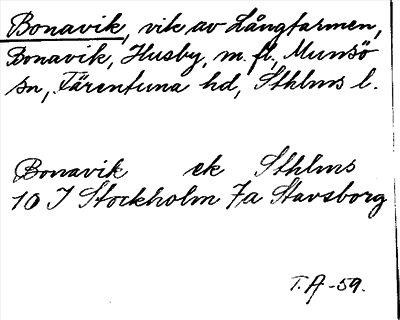 Bonavik, vik av Långtarmen,
Bonavik, Husby, m. fl., Munsö
sn, Färentuna hd, Sthlms l.
Bonavik ek Sthlms
10 I Stockholm 7a Stavsborg
T.A-59.